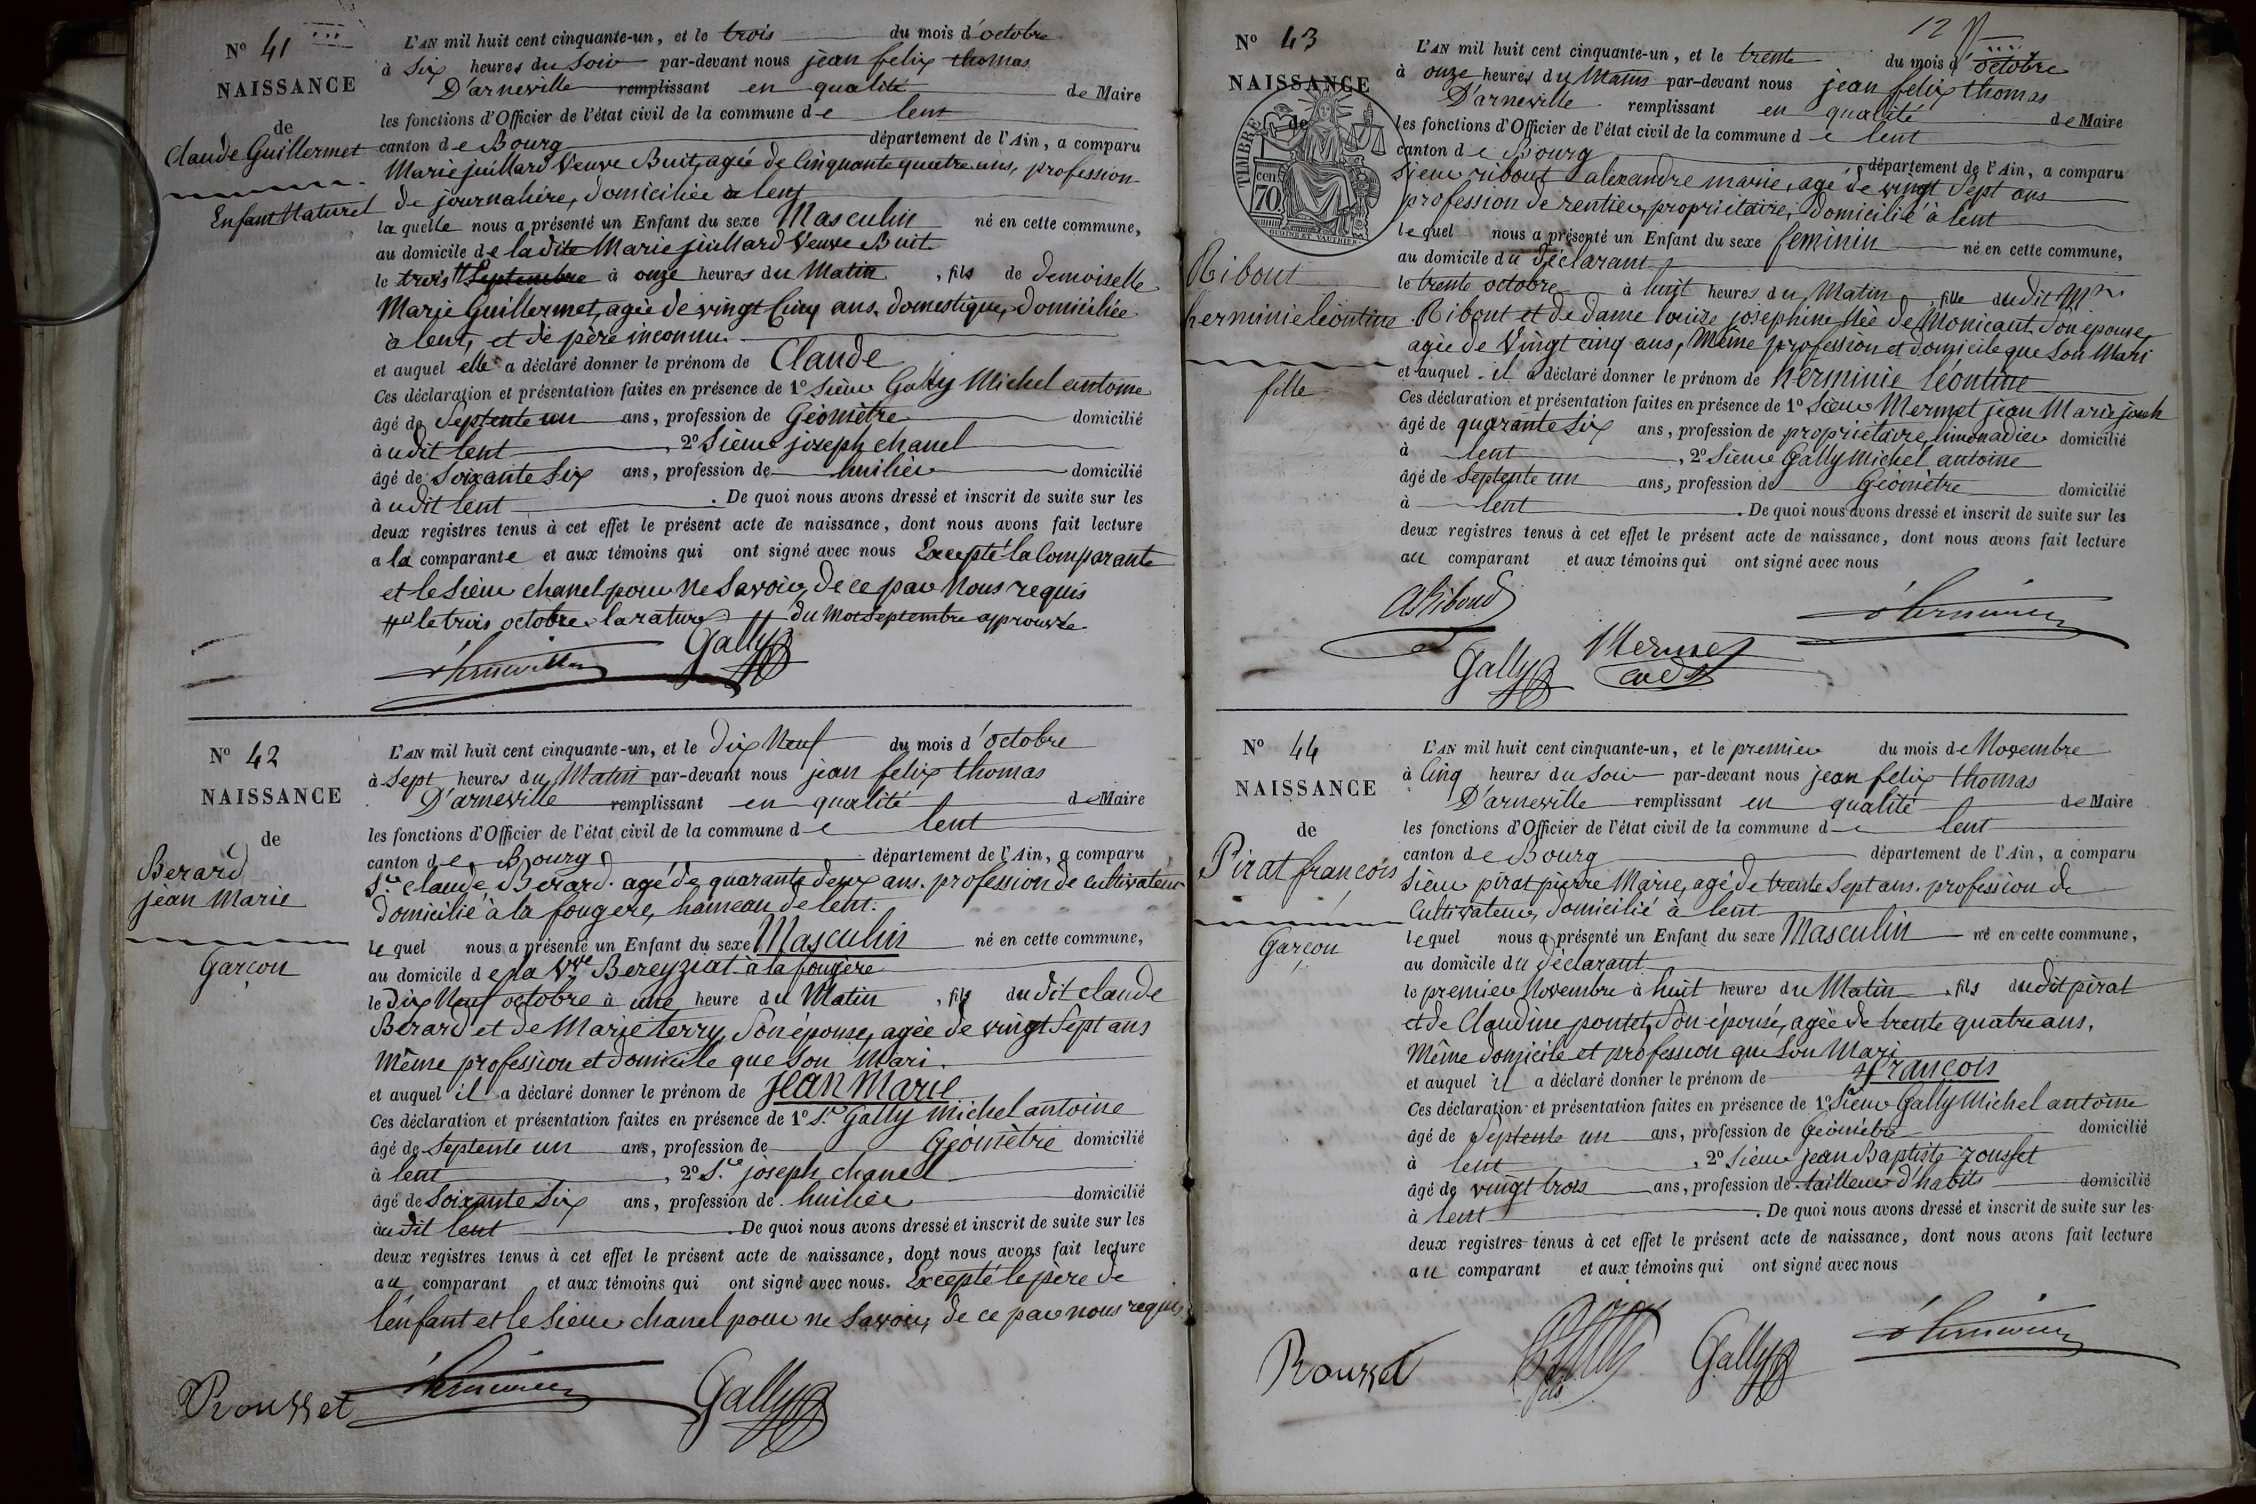 Nº 41
NAISSANCE
de
Claude Guillermet
Enfant Naturel
L'AN mil huit cent cinquante-un, et le trois du mois d'octobre
à Six heures du Soir par-devant nous jean felix thomas
D'arneville remplissant en qualité de Maire
les fonctions d'Officier de l'état civil de la commune de lent
canton de Bourg département de l'Ain, a comparu
Marie juillard Veuve Buit, agée de Cinquante quatre ans, profession
de journalière, domiciliée a lent
laquelle nous a présenté un Enfant du sexe Masculin né en cette commune,
au domicile de ladite Marie juillard Veuve Buit
le trois Septembre à onze heures du Matin, fils de demoiselle
Marie Guillermet, agée de vingt Cinq ans, domestique, domiciliée
à lent, et de père inconnu.
et auquel elle a déclaré donner le prénom de Claude
Ces déclaration et présentation faites en présence de 1º Sieur Gally Michel antoine
âgé de Septente un ans, profession de Géomètre domicilié
audit lent, 2º Sieur joseph chanel
âgé de Soixante Six ans, profession de huilier domicilié
audit lent. De quoi nous avons dressé et inscrit de suite sur les
deux registres tenus à cet effet le présent acte de naissance, dont nous avons fait lecture
a la comparante et aux témoins qui ont signé avec nous Excepté la Comparante
et le Sieur chanel pour ne Savoir, de ce par Nous requis
le trois octobre la rature du mot Septembre approuvée
Gally
Nº 42
NAISSANCE
de
Berard
jean Marie
Garçon
L'AN mil huit cent cinquante-un, et le Dix Neuf du mois d'octobre
à Sept heures du Matin par-devant nous jean felix thomas
D'arneville remplissant en qualité de Maire
les fonctions d'Officier de l'état civil de la commune de lent
canton de Bourg département de l'Ain, a comparu
Sr Claude Berard. agé de quarante deux ans. profession de cultivateur
domicilié à la fougere, hameau de lent.
lequel nous a présenté un Enfant du sexe Masculin né en cette commune,
au domicile de la Vve Bereyziat à la fougère
le Dix Neuf octobre à une heure du Matin, fils dudit claude
Berard et de Marie terry, Son épouse, agée de vingt Sept ans
Même profession et domicile que Son Mari.
et auquel il a déclaré donner le prénom de jean Marie
Ces déclaration et présentation faites en présence de 1º Sr Gally michel antoine
âgé de Septente un ans, profession de Géomètre domicilié
à lent, 2º Sr joseph chanel
âgé de Soixante Six ans, profession de huilier domicilié
audit lent. De quoi nous avons dressé et inscrit de suite sur les
deux registres tenus à cet effet le présent acte de naissance, dont nous avons fait lecture
au comparant et aux témoins qui ont signé avec nous. Excepté le père de
l'enfant et le Sieur chanel pour ne Savoir, de ce par nous requis
Rousset Gally
12
Nº 43
NAISSANCE
de
TIMBRE
70 cen
Ribout
herminie léontine
fille
L'AN mil huit cent cinquante-un, et le trente du mois d'octobre
à onze heures du Matin par-devant nous jean felix thomas
D'arneville remplissant en qualité de Maire
les fonctions d'Officier de l'état civil de la commune de lent
canton de Bourg département de l'Ain, a comparu
Sieur ribout alexandre marie, agé de vingt Sept ans
profession de rentier, propriétaire, domicilié à lent
lequel nous a présenté un Enfant du sexe feminin né en cette commune,
au domicile du déclarant
le trente octobre à huit heures du Matin, fille dudit Mr
Ribout et de dame louise josephine Née de Monicaut Son épouse,
agée de Vingt cinq ans, Même profession et domicile que Son Mari
et auquel il a déclaré donner le prénom de herminie léontine
Ces déclaration et présentation faites en présence de 1º Sieur Mermet jean Marie joseh
âgé de quarante Six ans, profession de propriétaire, limonadier domicilié
à lent, 2º Sieur Gally Michel antoine
âgé de Septente un ans, profession de Géomètre domicilié
à lent. De quoi nous avons dressé et inscrit de suite sur les
deux registres tenus à cet effet le présent acte de naissance, dont nous avons fait lecture
au comparant et aux témoins qui ont signé avec nous
ARiboud
Gally Mermet
Nº 44
NAISSANCE
de
Pirat françois
Garçon
L'AN mil huit cent cinquante-un, et le premier du mois de Novembre
à Cinq heures du Soir par-devant nous jean felix thomas
D'arneville remplissant en qualité de Maire
les fonctions d'Officier de l'état civil de la commune de lent
canton de Bourg département de l'Ain, a comparu
Sieur pirat pierre Marie, agé de trente Sept ans. profession de
Cultivateur, domicilié à lent
lequel nous a présenté un Enfant du sexe Masculin né en cette commune,
au domicile du déclarant
le premier Novembre à huit heures du Matin, fils dudit pirat
et de Claudine pontet, Son épouse, agée de trente quatre ans,
Même domicile et profession que Son Mari
et auquel il a déclaré donner le prénom de françois
Ces déclaration et présentation faites en présence de 1º Sieur Gally Michel antoine
âgé de Septente un ans, profession de Géomètre domicilié
à lent, 2º Sieur jean Baptiste rousset
âgé de vingt trois ans, profession de tailleur d'habits domicilié
à lent. De quoi nous avons dressé et inscrit de suite sur les
deux registres tenus à cet effet le présent acte de naissance, dont nous avons fait lecture
au comparant et aux témoins qui ont signé avec nous
Rousset Gally